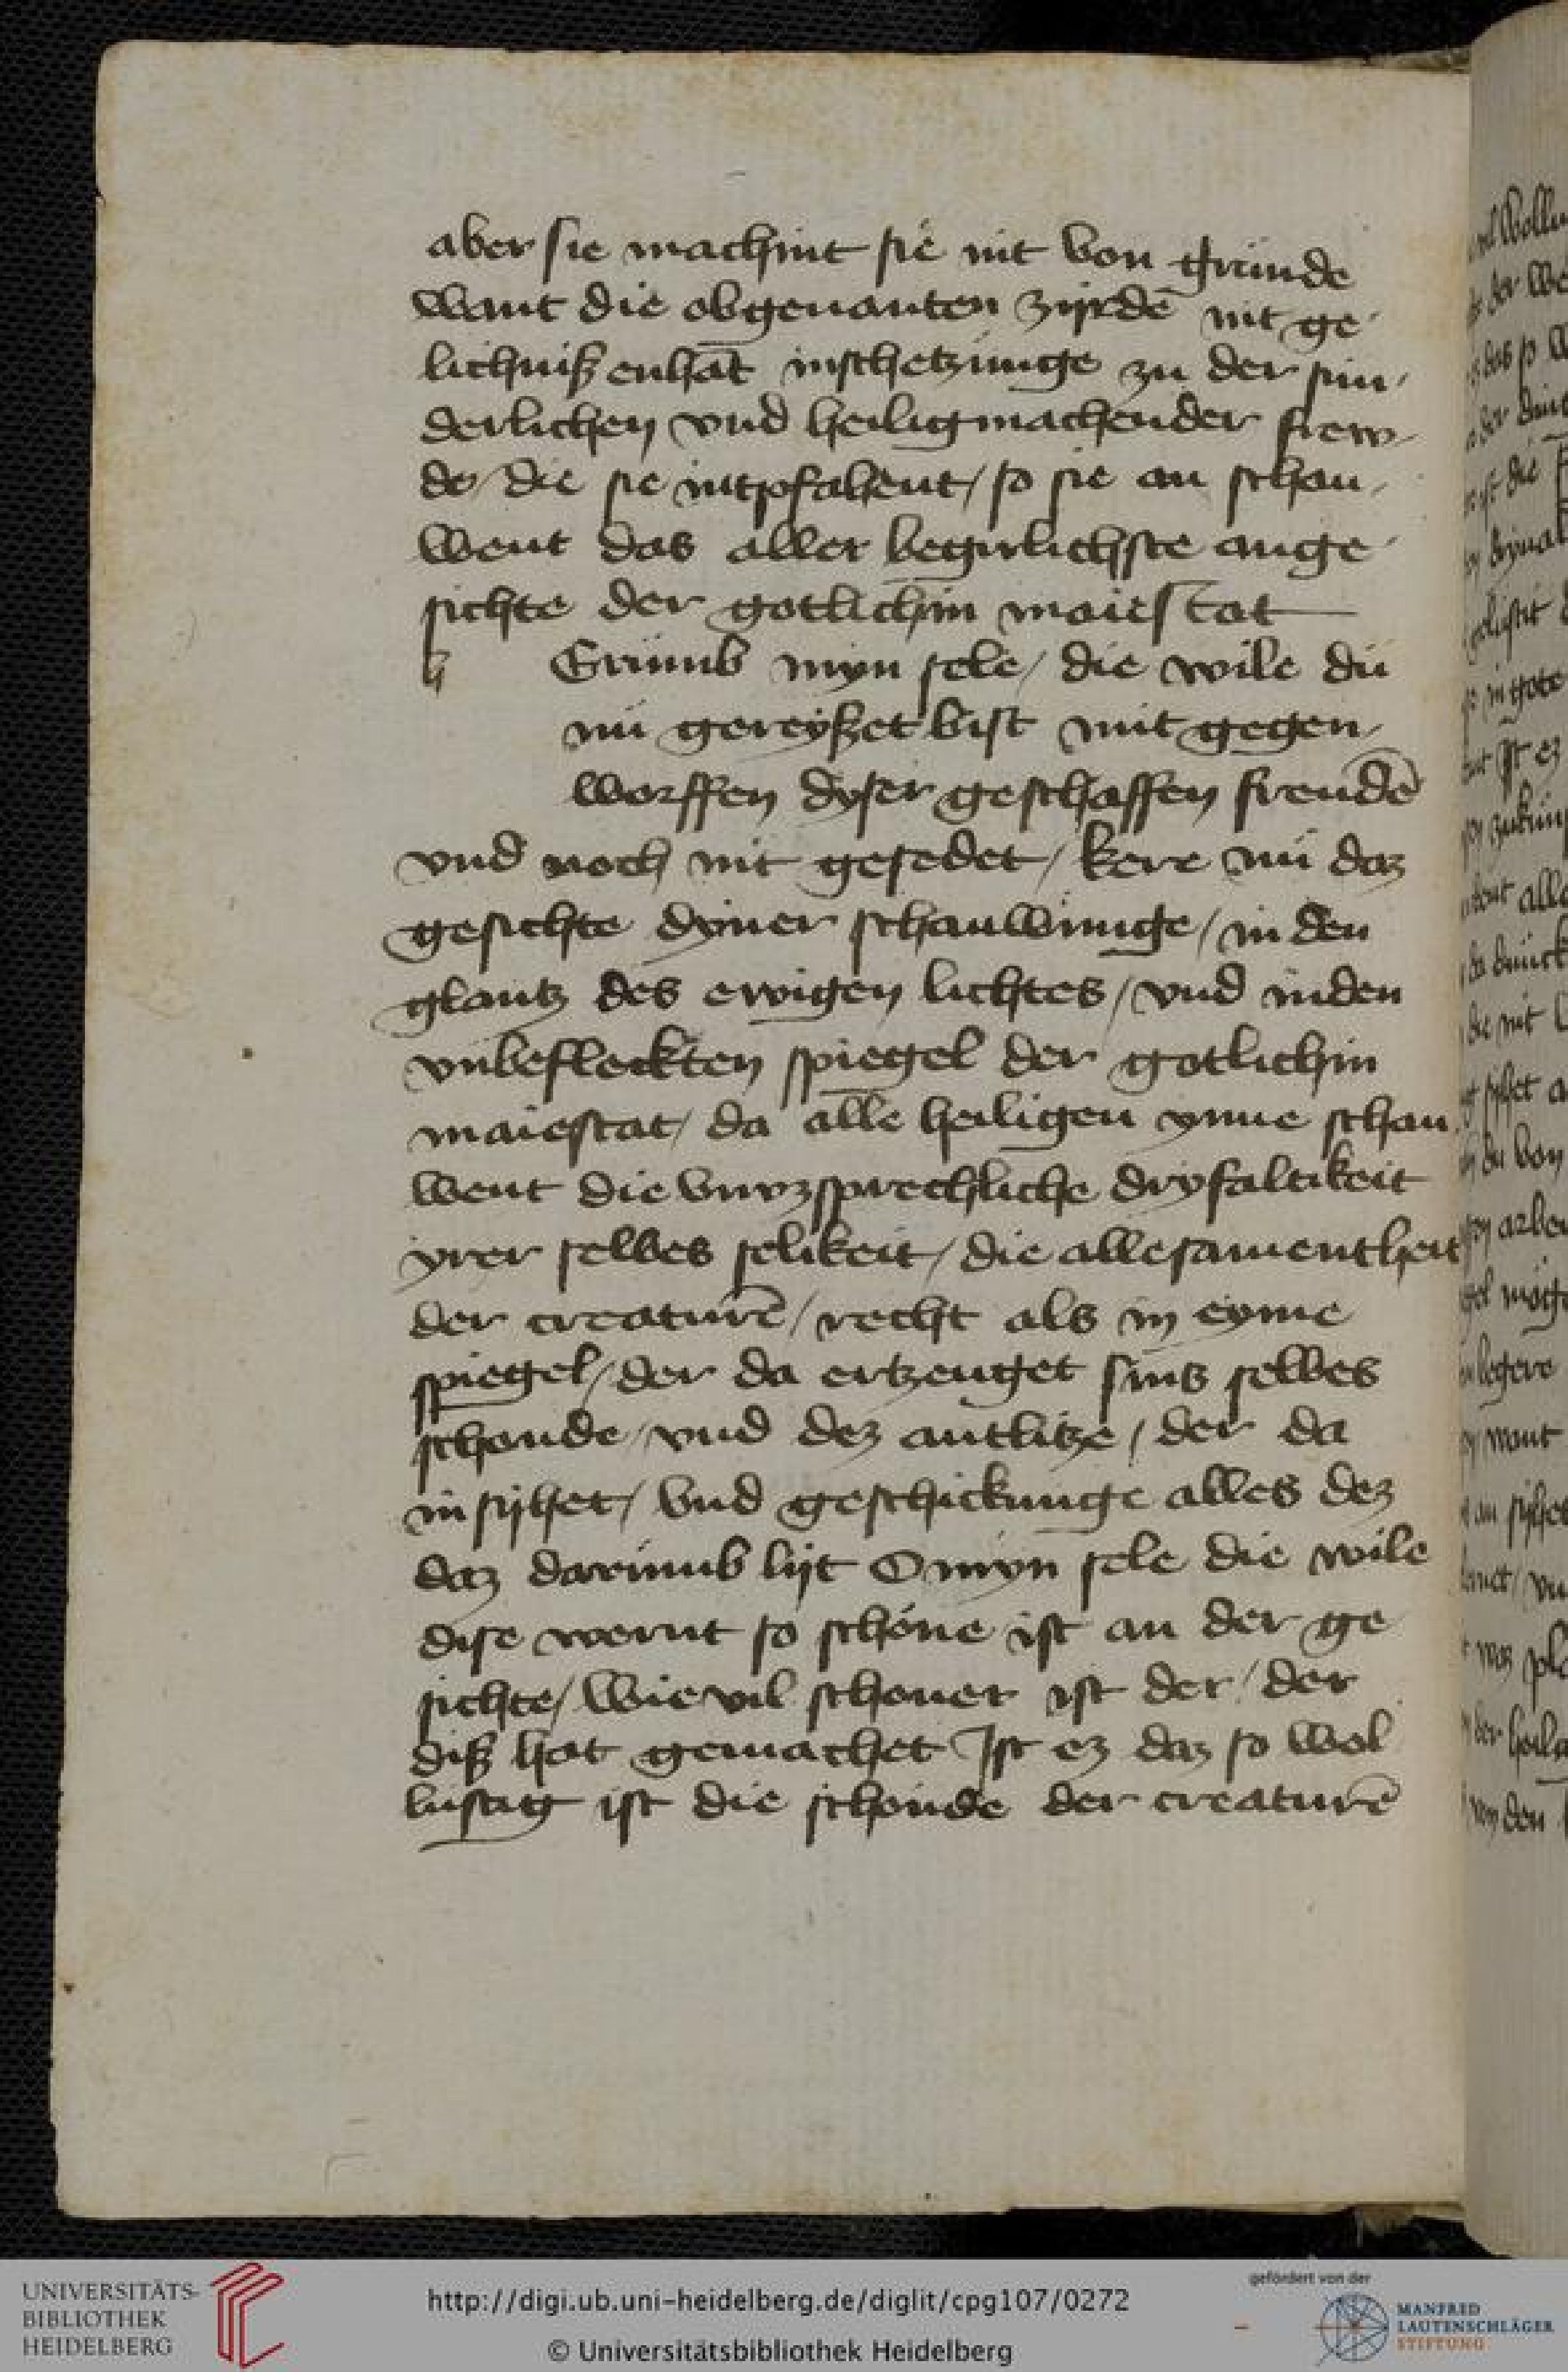 aber sie machint sie nit von grunde
want die obgenanten zijrdē nit ge
lichniß enhāt inschetzunge zu der sun
derlichen vnd heiligmachender frew
de / die sie intpfahent / so sie an schau
went das aller begirlichste ange
sichte der gotlichin maiestat
h Erumb myn sele / die wile du
nu gereyßet bist mit gegen
worffen dyser geschaffen freudē
vnd noch nit gesedet / kere nu daz
gesichte dyner schauwunge / in den
glantz des ewigen lichtes / vnd in den
vnbefleckten spiegel der gotlichin
maiestat / da alle heiligen ynne schau
went die vnvzsprechliche dryfaltikeit
yrer selbes selikeit / die allesamentheit
der creaturē / recht als in eyme
spiegel / der da ertzeuget sins selbes
schonde / vnd dez antlitze / der da
in sijhet / vnd geschickunge alles dez
daz darumb lijt O myn sele die wile
dise wernt so schone ist an der ge
sichte / wie vil schoner ist der / der
diß hat gemachet Ist ez daz so wol
lustig ist die schonde der creaturē
UNIVERSITÄTS-
BIBLIOTHEK
HEIDELBERG
http://digi.ub.uni-heidelberg.de/diglit/cpg107/0272
© Universitätsbibliothek Heidelberg
gefördert von der
MANFRED
LAUTENSCHLÄGER
STIFTUNG